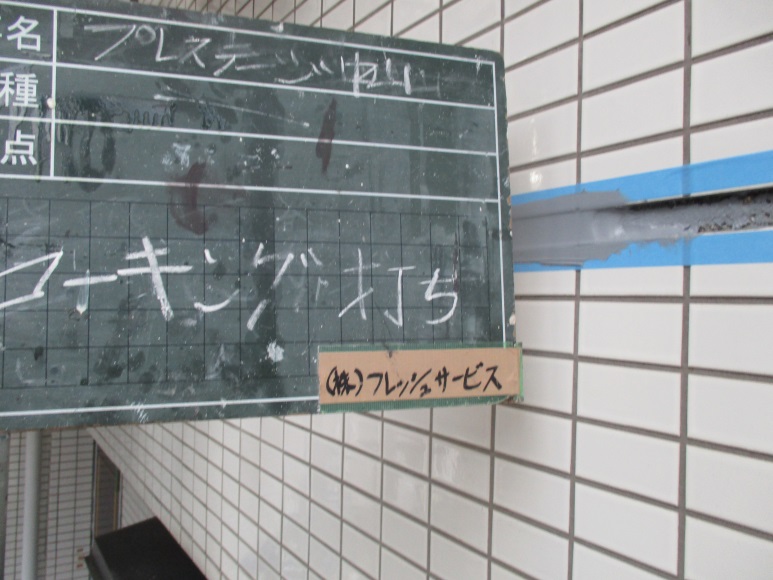 名 プレステージ中山
種
点
コーキング打ち
(株)フレッシュサービス